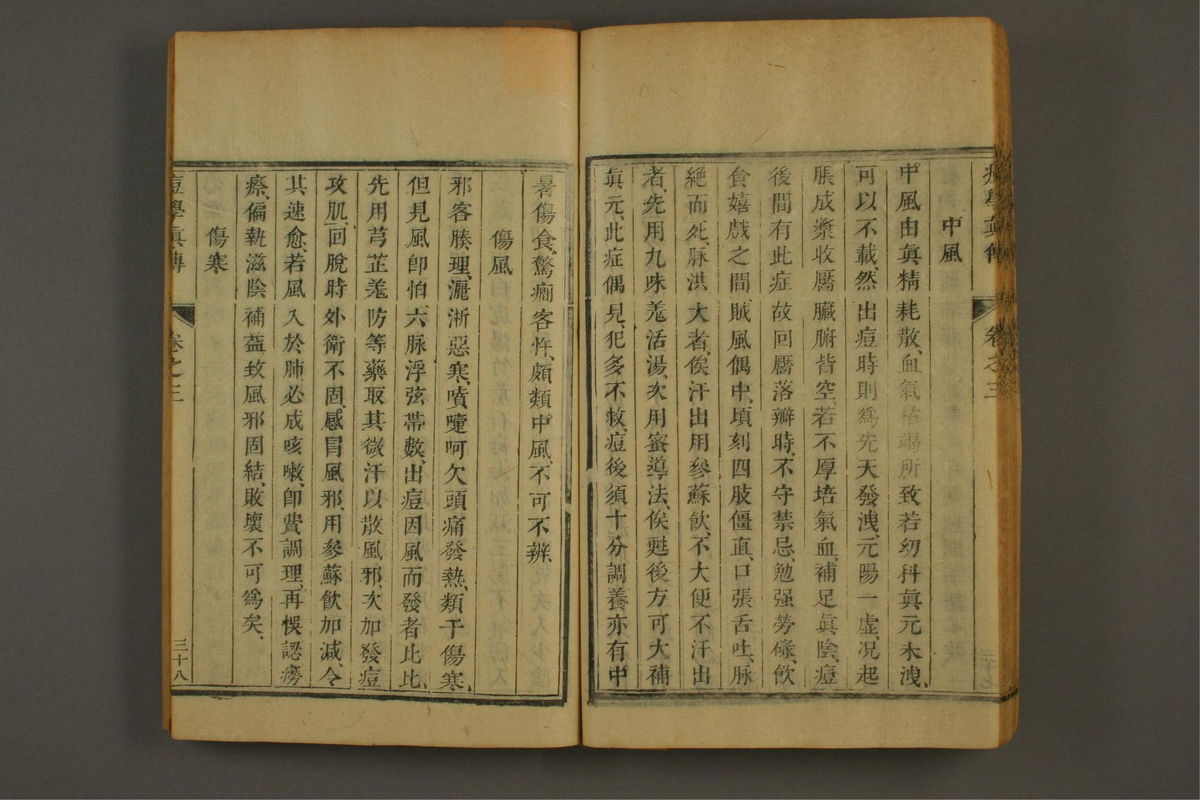 痘學眞傳 卷之三
中風
中風由眞精耗散、血氣祜竭所致、若幼科眞元未洩、
可以不載、然出痘時則爲先天發洩、元陽一虛、况起
脹成漿收靨、臟腑皆空、若不厚培氣血、補足眞陰、痘
後間有此症、故回靨落瓣時、不守禁忌、勉强勞碌、飲
食嬉戲之間、賊風偶中、頃刻四肢僵直、口張舌吐、脉
絶而死、脉洪大者、俟汗出用參蘇飲、不大便不汗出
者、先用九味羗活湯、次用蜜導法、俟甦後方可大補
眞元、此症偶見、犯多不救、痘後須十分調養、亦有中
暑傷食、驚癎客忤、頗類中風、不可不辨、
傷風
邪客腠理、灑淅惡寒、噴嚏呵欠、頭痛發熱、類于傷寒、
但見風卽怕、六脉浮弦帯數、出痘因風而發者比比、
先用芎芷羗防等藥、取其微汗以散風邪、次加發痘
攻肌、回脫時外衛不固、感冒風邪、用參蘇飲加減、令
其速愈、若風入於肺、必成咳嗽、卽費調理、再悞認癆
瘵、偏執滋陰補益、致風邪固結、敗壞不可爲矣、
傷寒
痘學眞傳 卷之三 三十八